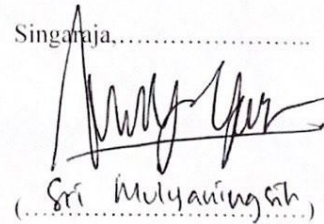 Singaraja,..............................
(...Sri Mulyaningsih...)